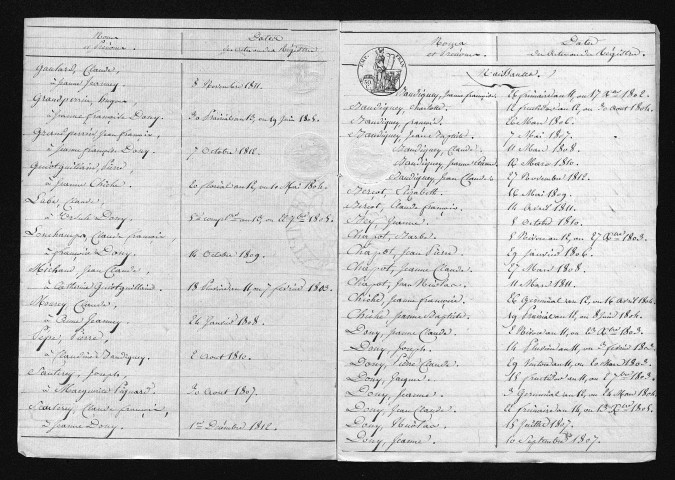 Noms et Prénoms
Dates
Gaulard, Claude,
à Jeanne Jeannez 8 Novembre 1811.
Grandperrin, Hugues,
à Jeanne françoise Douy. 30 Prairial an 13, ou 19 Juin 1805.
Grandperrin, Jean françois,
à Jeanne françoise Douy. 7 Octobre 1812.
Guiotguillain, Pierre,
à Jeanne Chiche. 20 floréal an 12, ou 10 Mai 1804.
Labé, Claude,
Douy, 1805.
Lonchampt, Claude françois,
à françoise Douy. 14 Octobre 1809.
Michaud, Jean Claude,
à Catherine Guiotguillain. 18 Pluviôse an 11, ou 7 février 1803.
Claude,
à Anne Jeannez. 24 Janvier 1808.
Pepe, Pierre,
à Claudine Baudiquey. 2 Aout 1810.
Joseph,
à Marguerite 30 Aout 1807.
Claude françois,
à Jeanne Douy. 1er Décembre 1812.
Noms et Prénoms
Dates des Actes au Régistre.
Naissances.
Baudiquey, Jeanne françoise. 26 frimaire an 11, ou 17 Xbre 1802.
Baudiquey, Charlotte. 12 fructidor an 12, ou 30 Aout 1804.
Baudiquey, françois. 20 Mars 1806.
Baudiquey, Jean Baptiste. 7 Mai 1807.
Baudiquey, Claude. 11 Mars 1808.
Baudiquey, Jeanne 12 Mars 1810.
Baudiquey, Jean Claude. 27 Novembre 1812.
Bercot, Elizabeth. 26 Mai 1809.
Bercot, Claude françois. 14 Avril 1811.
Jeanne. 8 Octobre 1810.
Chapot, Barbe. 5 Nivôse an 12, ou 27 Xbre 1803.
Chapot, Jean Pierre. 29 Janvier 1806.
Chapot, Jeanne Claude. 27 Mars 1808.
Chapot, Jean Nicolas. 11 Mars 1811.
Chiche, Jeanne françoise. 26 Germinal an 12, ou 16 Avril 1804.
Chiche, Jeanne Baptiste. 19 Prairial an 12, ou 8 Juin 1804.
Douy, Jeanne Claude. 2 Nivôse an 11, ou 23 Xbre 1802.
Douy, Joseph. 14 Pluviôse an 11, ou 3 février 1803.
Douy, Pierre Claude. 29 Ventôse an 11, ou 20 Mars 1803.
Douy, Jacques. 15 fructidor an 11, ou 2 7bre 1803.
Douy, Jeanne. 3 Germinal an 12, ou 24 Mars 1804.
Douy, Jean Claude. frimaire an 14, ou 13 Xbre 1805.
Douy, Nicolas. 15 Juillet 1807.
Douy, Jeanne. 10 Septembre 1807.